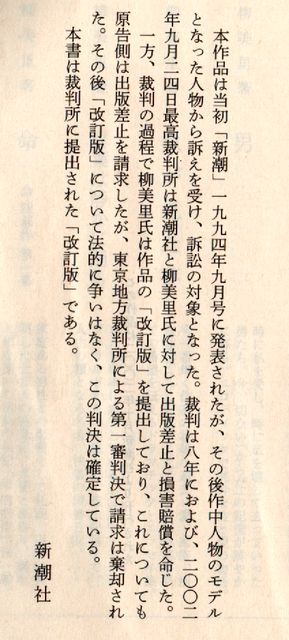 本作品は当初「新潮」一九九四年九月号に発表されたが、その後作中人物のモデル
となった人物から訴えを受け、訴訟の対象となった。裁判は八年におよび、二〇〇二
年九月二四日最高裁判所は新潮社と柳美里氏に対して出版差止と損害賠償を命じた。
一方、裁判の過程で柳美里氏は作品の「改訂版」を提出しており、これについても
原告側は出版差止を請求したが、東京地方裁判所による第一審判決で請求は棄却され
た。その後「改訂版」について法的に争いはなく、この判決は確定している。
本書は裁判所に提出された「改訂版」である。
新潮社